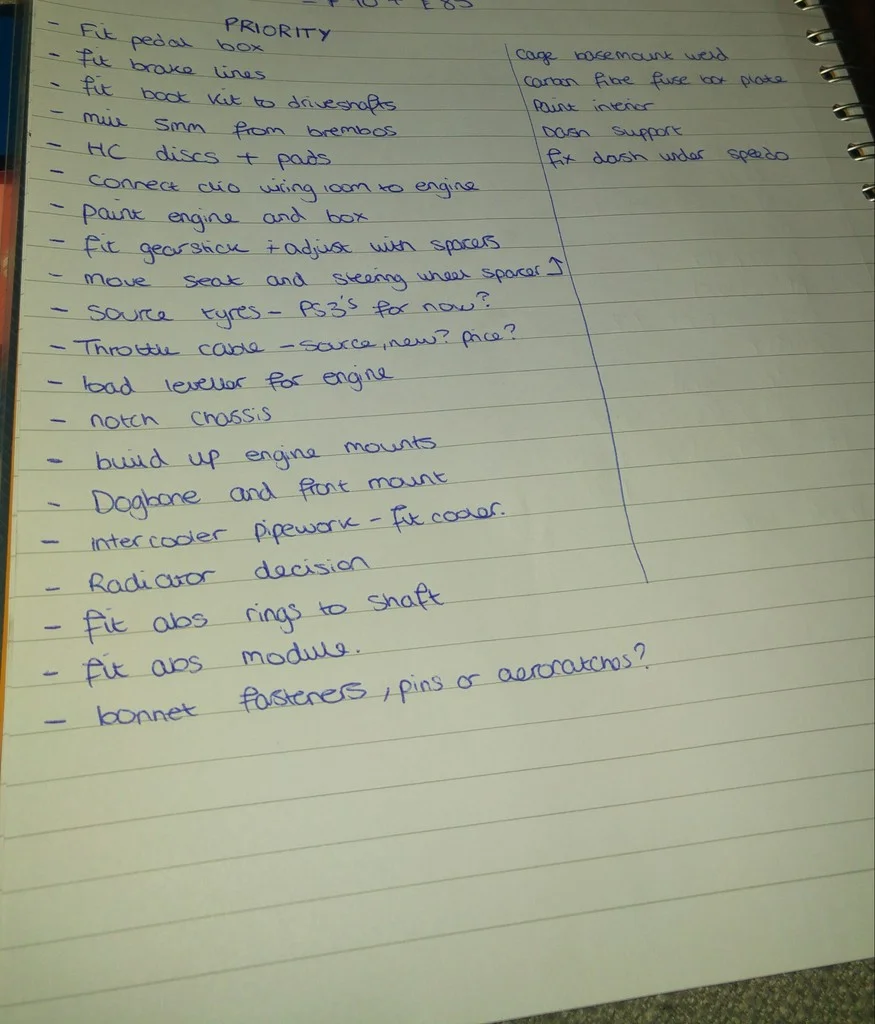 PRIORITY
- Fit pedal box
- fit brake lines
- fit boot kit to driveshafts
- mill 5mm from brembos
- HC discs + pads
- connect clio wiring loom to engine
- paint engine and box
- fit gearstick + adjust with spacers
- move seat and steering wheel spacer ↑
- source tyres - PS3's for now?
- Throttle cable - source, new? price?
- load leveller for engine
- notch chassis
- build up engine mounts
- Dogbone and front mount
- intercooler pipework - fit cooler.
- Radiator decision
- fit abs rings to shaft
- fit abs module.
- bonnet fasteners, pins or aerocatches?
cage basemount weld
carbon fibre fuse box plate
paint interior
Dash support
fix dash under speedo